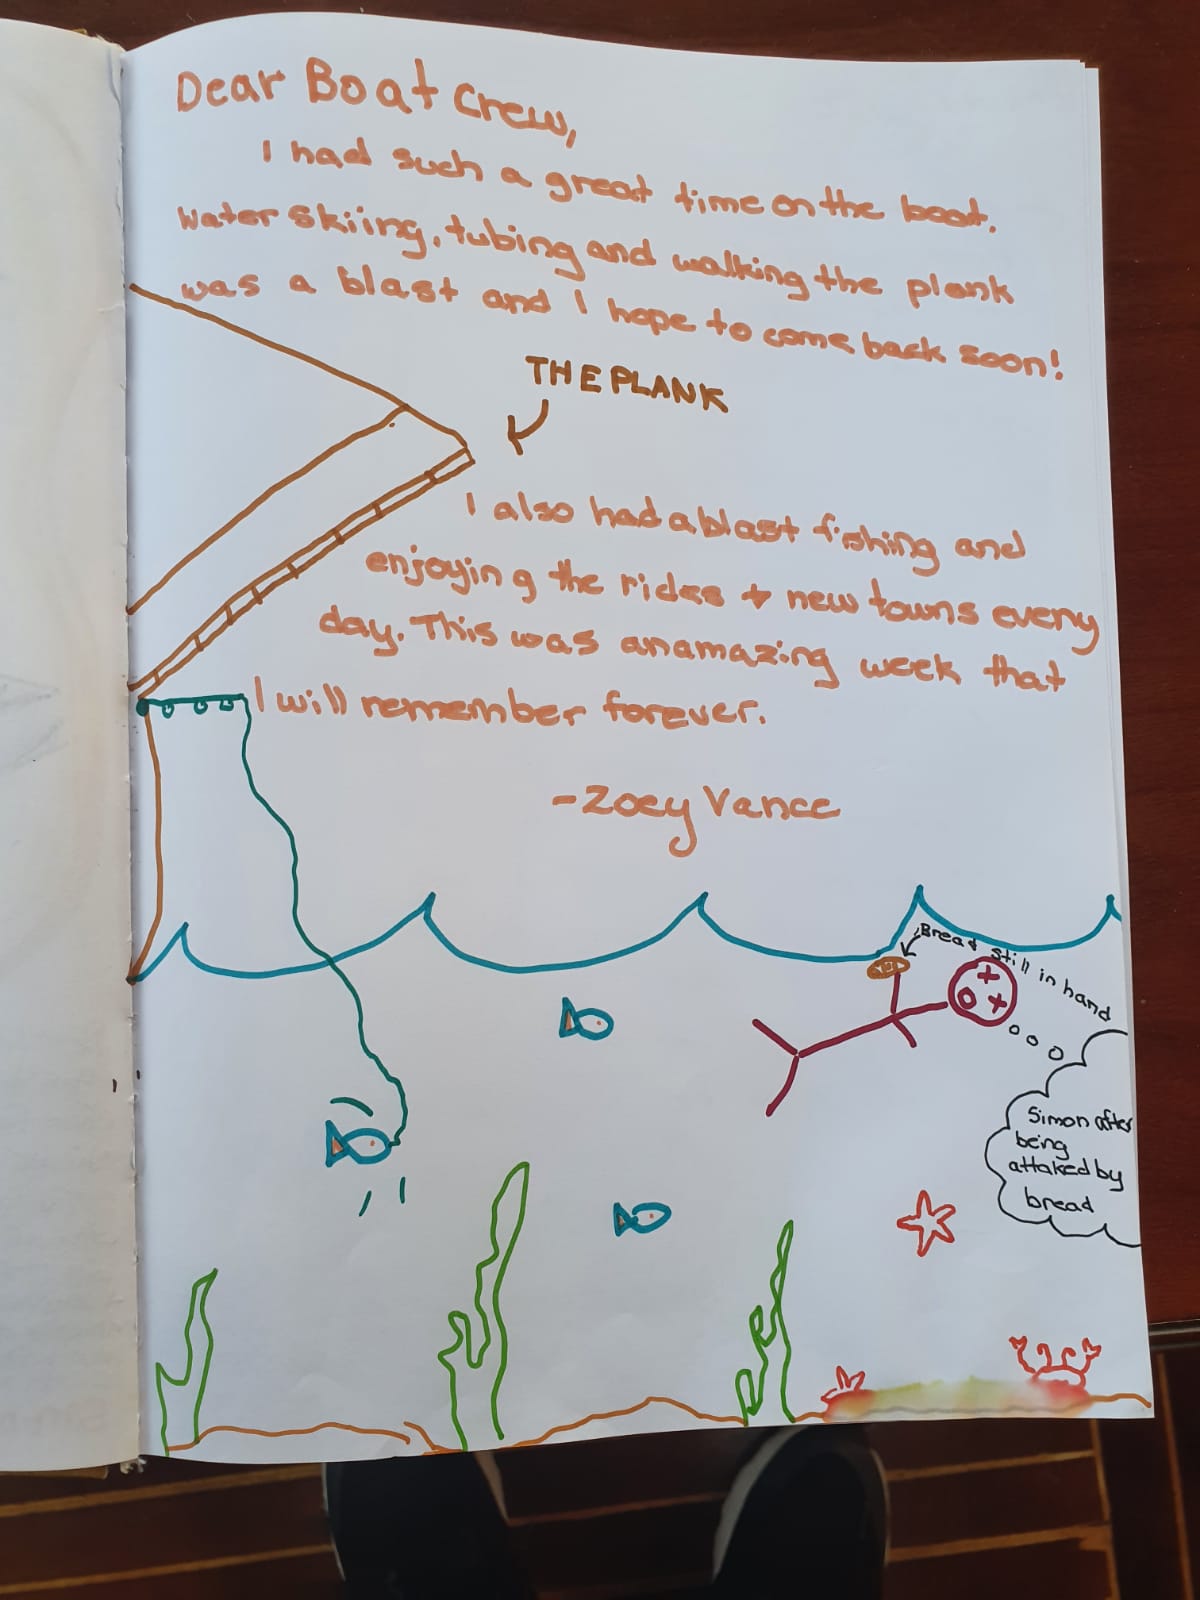 Dear Boat Crew,
I had such a great time on the boat.
Water skiing, tubing and walking the plank
was a blast and I hope to come back soon!
THE PLANK
I also had a blast fishing and
enjoying the rides + new towns every
day. This was an amazing week that
I will remember forever.
-Zoey Vance
Bread still in hand
Simon after
being
attaked by
bread